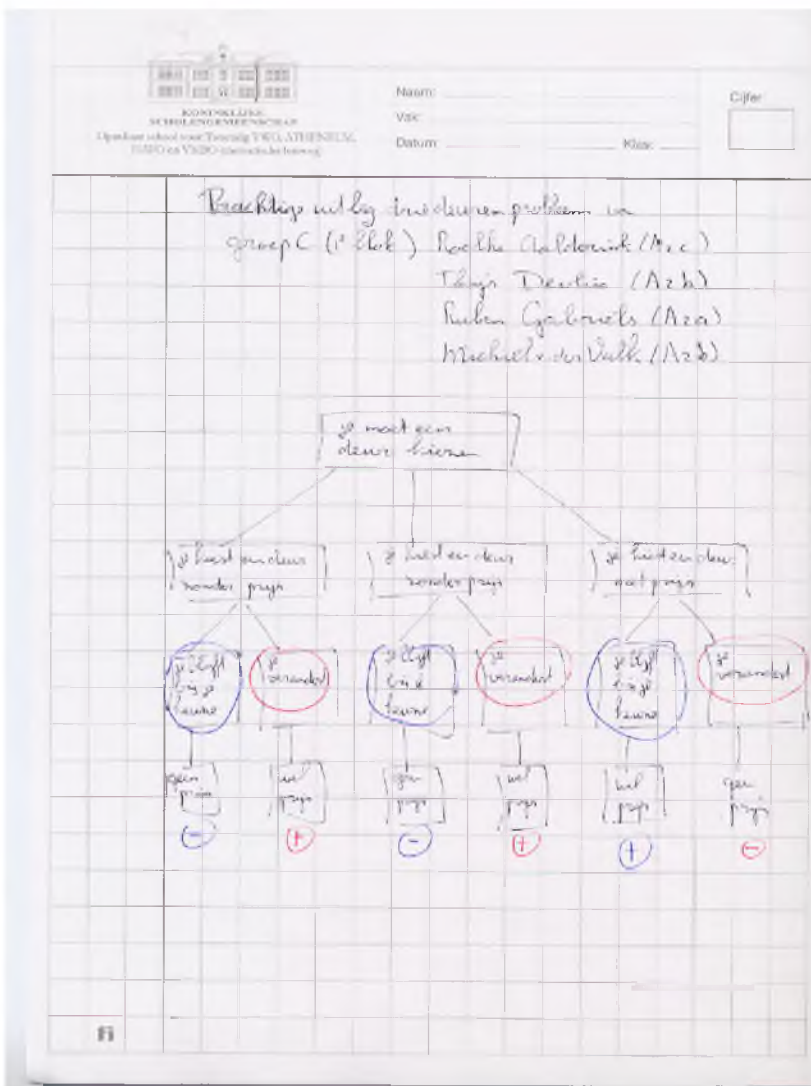 KONINKLIJKE
SCHOLENGEMEENSCHAP
Openbare school voor Tweetalig VWO, ATHENEUM,
HAVO en VMBO (theoretische leerweg)
Naam:
Vak:
Datum: Klas:
Cijfer
Prachtige uitleg driedeuren probleem van
groep C (1e blok) (A2c)
Thijs (A2b)
Ruben Gabriels (A2a)
Michiel v der Valk (A2b)
je moet een
deur kiezen
je kiest een deur
zonder prijs
je kiest een deur
zonder prijs
je kiest een deur
met prijs
je blijft
bij je
keuze
je
verandert
je blijft
bij je
keuze
je
verandert
je blijft
bij je
keuze
je
verandert
geen
prijs
wel
prijs
geen
prijs
wel
prijs
wel
prijs
geen
prijs
- + - + + -